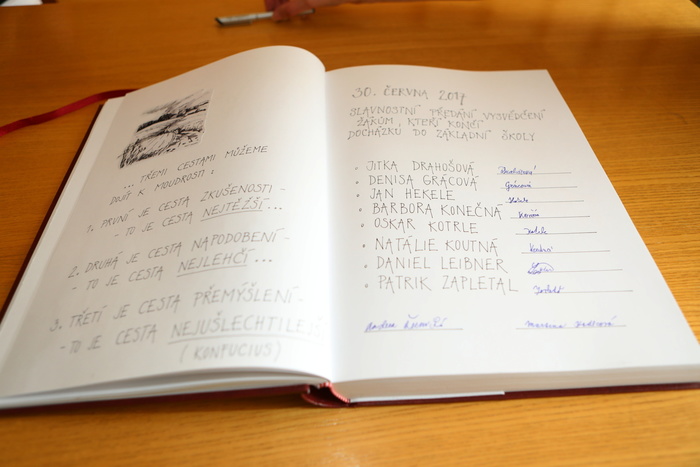 ... TŘEMI CESTAMI MŮŽEME
DOJÍT K MOUDROSTI:
1. PRVNÍ JE CESTA ZKUŠENOSTI -
- TO JE CESTA NEJTĚŽŠÍ...
2. DRUHÁ JE CESTA NAPODOBENÍ -
- TO JE CESTA NEJLEHČÍ...
3. TŘETÍ JE CESTA PŘEMÝŠLENÍ -
- TO JE CESTA NEJUŠLECHTILEJŠÍ
(KONFUCIUS)
30. ČERVNA 2017
SLAVNOSTNÍ PŘEDÁNÍ VYSVĚDČENÍ
ŽÁKŮM, KTEŘÍ KONČÍ
DOCHÁZKU DO ZÁKLADNÍ ŠKOLY
• JITKA DRAHOŠOVÁ Drahošová
• DENISA GRÁCOVÁ Grácová
JAN HEKELE Hekele
• BARBORA KONEČNÁ
• OSKAR KOTRLE Kotrle
• NATÁLIE KOUTNÁ Koutná
• DANIEL LEIBNER
• PATRIK ZAPLETAL
Martina